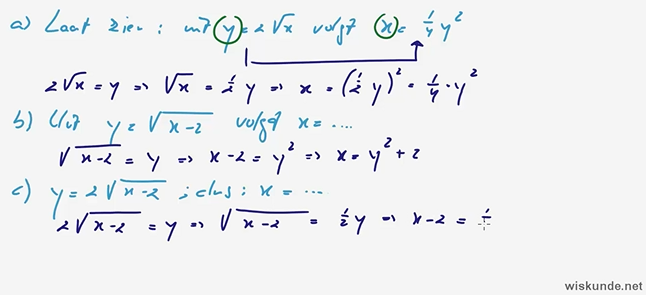 a) Laat zien : uit y = 2√x volgt x = 1/4 y²
2√x = y => √x = 1/2 y => x = (1/2 y)² = 1/4 · y²
b) Uit y = √(x-2) volgt x = ....
√(x-2) = y => x-2 = y² => x = y² + 2
c) y = 2√(x-2) ; dus : x = ...
2√(x-2) = y => √(x-2) = 1/2 y => x-2 = 1/
wiskunde.net